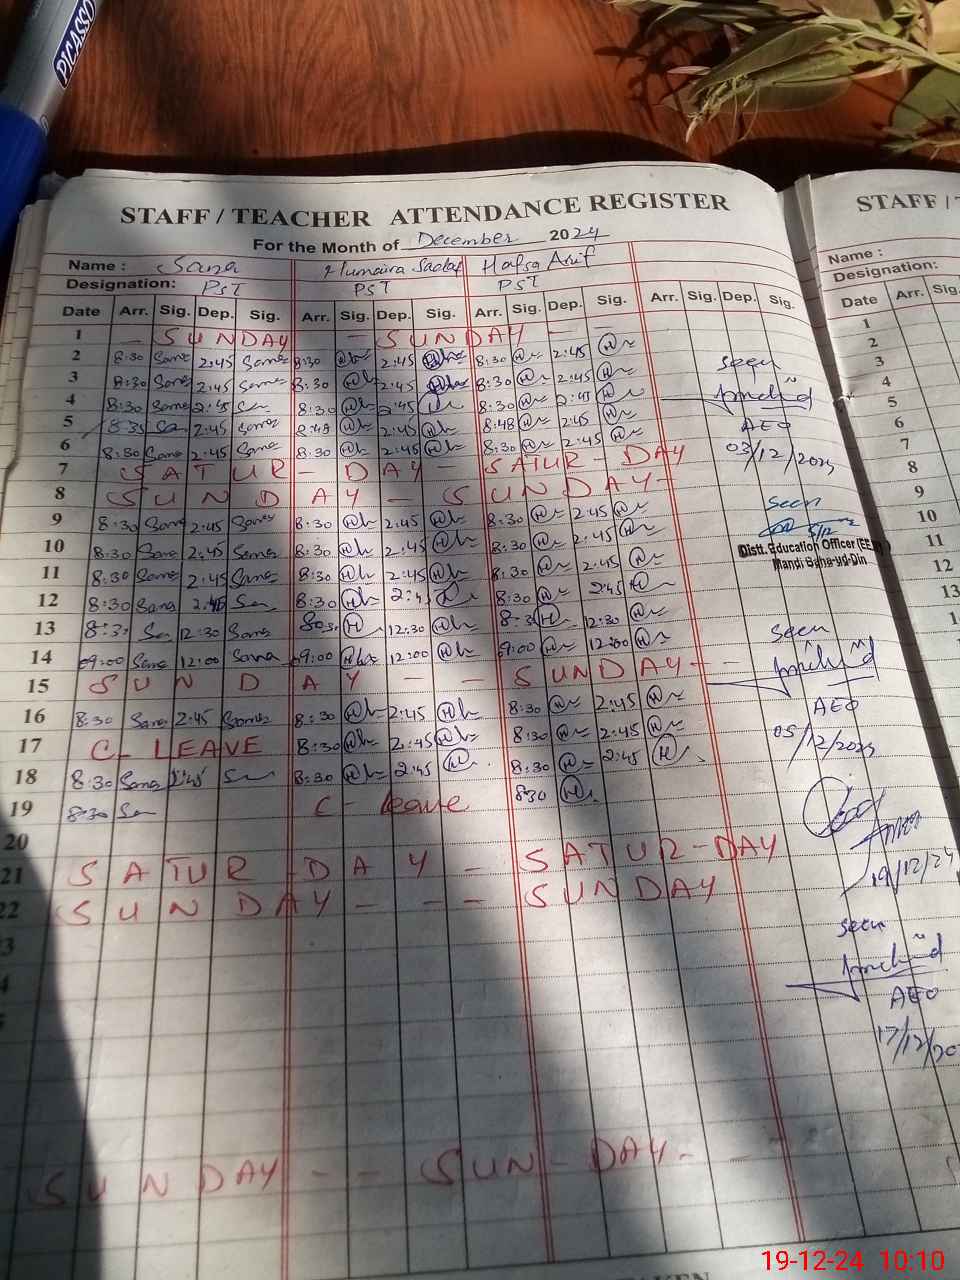 PICASSO
STAFF / TEACHER ATTENDANCE REGISTER
For the Month of December 2024
Name : Sana Humaira Sadaf Hafsa Arif
Designation: PST PST PST
Date Arr. Sig. Dep. Sig. Arr. Sig. Dep. Sig. Arr. Sig. Dep. Sig. Arr. Sig. Dep. Sig.
1 - SUNDAY - SUNDAY - -
2 8:30 Sana 2:45 Sana 8:30 2:45 8:30 2:45
3 8:30 Sana 2:45 Sana 8:30 2:45 8:30 2:45
4 8:30 Sana 2:45 Sa 8:30 2:45 8:30 2:45
5 8:35 Sa 2:45 Sana 8:48 2:45 8:48 2:45
6 8:30 Sana 2:45 Sana 8:30 2:45 8:30 2:45
7 SATUR - DAY - SATUR - DAY
8 SUNDAY - SUNDAY -
9 8:30 Sana 2:45 Sana 8:30 2:45 8:30 2:45
10 8:30 Sana 2:45 Sana 8:30 2:45 8:30 2:45
11 8:30 Sana 2:45 Sana 8:30 2:45 8:30 2:45
12 8:30 Sana 2:45 Sa 8:30 2:45 8:30 2:45
13 8:30 Sa 12:30 Sana 8:30 12:30 8:30 12:30
14 09:00 Sana 12:00 Sana 09:00 12:00 9:00 12:00
15 SUNDAY - - SUNDAY - -
16 8:30 Sana 2:45 Sana 8:30 2:45 8:30 2:45
17 C- LEAVE 8:30 2:45 8:30 2:45
18 8:30 Sana 2:45 Sa 8:30 2:45 8:30 2:45
19 8:30 Sa C - leave 8:30
20
21 SATUR - DAY - SATUR - DAY
22 SUNDAY - - - SUNDAY
3
4
SUNDAY - - SUN - DAY - -
seen
AEO
03/12/2024
seen
5/12
Distt. Education Officer (EE
Mandi Baha-ud-Din
seen
AEO
05/12/2024
19/12/24
seen
AEO
17/12/20
STAFF / T
Name :
Designation:
Date Arr. Sig.
1
2
3
4
5
6
7
8
9
10
11
12
13
TAKEN
19-12-24 10:10